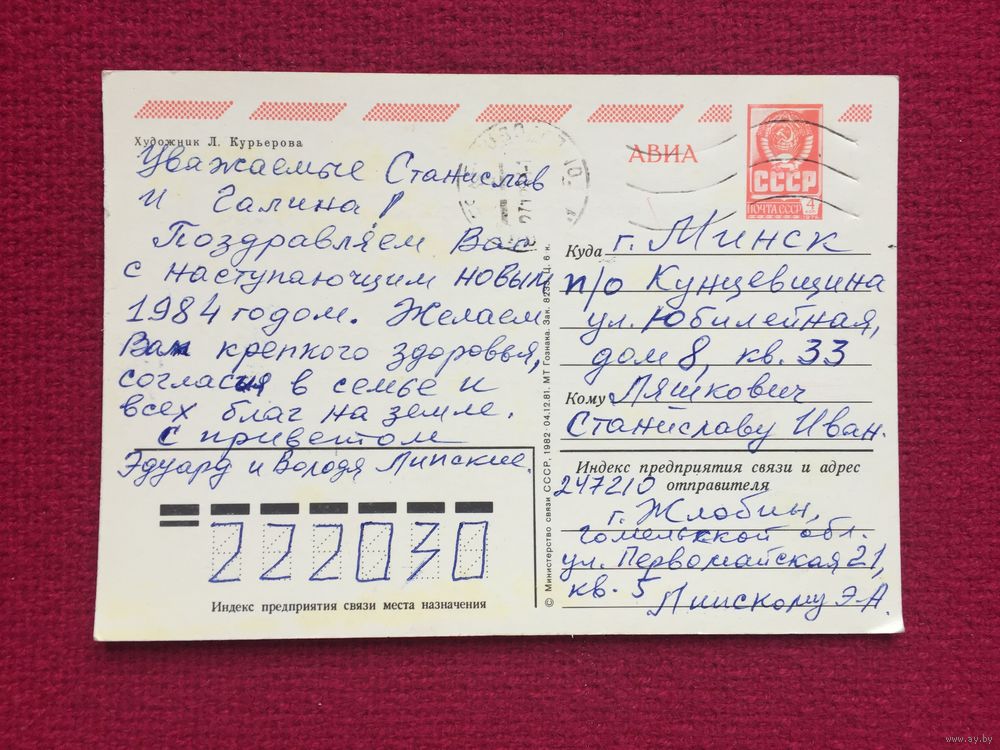 Художник Л. Курьерова
Уважаемые Станислав
и Галина!
Поздравляем Вас
с наступающим новым
1984 годом. Желаем
Вам крепкого здоровья,
согласия в семье и
всех благ на земле.
С приветом
Эдуард и Володя Липские.
222030
Индекс предприятия связи места назначения
© Министерство связи СССР, 1982 · 04.12.81. МТ Гознака. Зак. Ц. 6 к.
АВИА
СССР
ПОЧТА СССР 4
Куда г. Минск
п/о Кунцевщина
ул. Юбилейная,
дом 8, кв. 33
Кому Ляшкович
Станиславу Иван.
Индекс предприятия связи и адрес
отправителя
247210
г. Жлобин,
гомельской обл.
ул. Первомайская 21,
кв. 5 Липскому Э.А.
www.ay.by